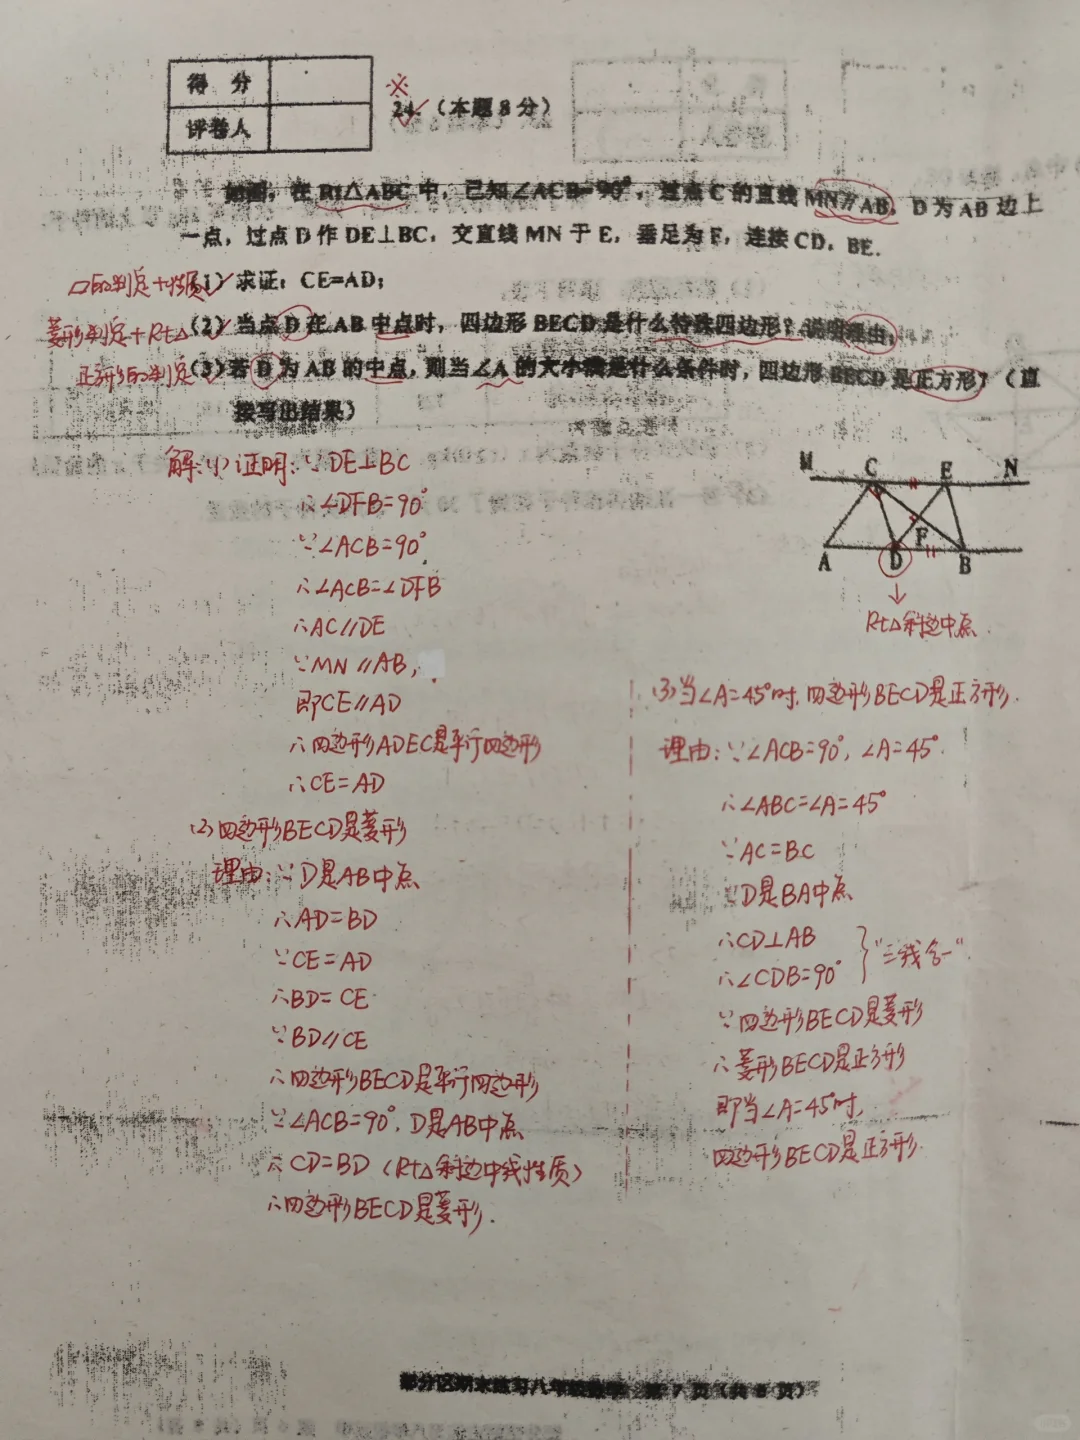 得 分
评卷人
※
24.（本题8分）
如图，在Rt△ABC中，已知∠ACB=90°，过点C的直线MN∥AB，D为AB边上
一点，过点D作DE⊥BC，交直线MN于E，垂足为F，连接CD，BE.
▱的判定+性质
(1) 求证：CE=AD;
菱形判定+Rt△
(2) 当点D在AB中点时，四边形BECD是什么特殊四边形？说明理由;
正方形的判定
(3)若D为AB的中点，则当∠A的大小满足什么条件时，四边形BECD是正方形？（直
接写出结果）
M C E N
A D F B
Rt△斜边中点.
解:(1)证明:∵DE⊥BC
∴∠DFB=90°
∵∠ACB=90°,
∴∠ACB=∠DFB
∴AC//DE
∵MN//AB,
即CE//AD
∴四边形ADEC是平行四边形
∴CE=AD
(2)四边形BECD是菱形
理由:∵D是AB中点
∴AD=BD
∵CE=AD
∴BD=CE
∵BD//CE
∴四边形BECD是平行四边形
∵∠ACB=90°,D是AB中点
∴CD=BD（Rt△斜边中线性质）
∴四边形BECD是菱形.
(3)当∠A=45°时,四边形BECD是正方形.
理由:∵∠ACB=90°,∠A=45°.
∴∠ABC=∠A=45°
∵AC=BC
∵D是BA中点
∴CD⊥AB
∴∠CDB=90°
"三线合一".
∵四边形BECD是菱形
∴菱形BECD是正方形
即当∠A=45°时,
四边形BECD是正方形.
部分区期末练习八年级数学 第7页（共8页）